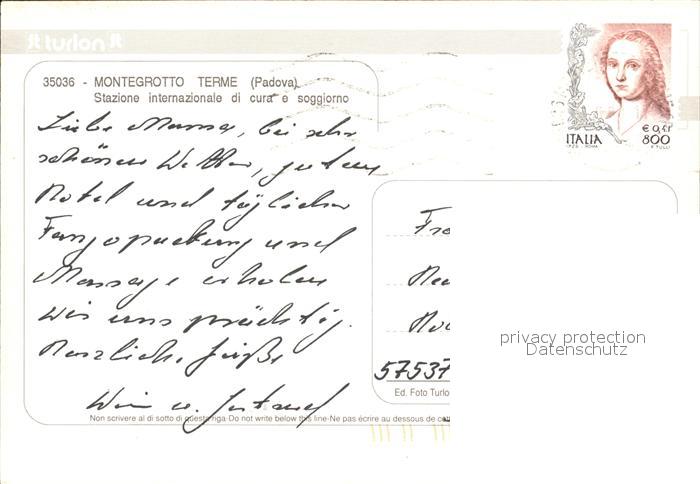 turlon
35036 - MONTEGROTTO TERME (Padova)
Stazione internazionale di cura e soggiorno
€ 0,41
ITALIA 800
Liebe Mama, bei sehr
schönem Wetter, gutem
Hotel und täglicher
Fangopackung und
Massage erholen
wir uns prächtig.
Herzliche Grüße
u. Gertrud
57537
Ed. Foto Turlo
Non scrivere al di sotto di questa riga-Do not write below this line-Ne pas écrire au dessous de
privacy protection
Datenschutz